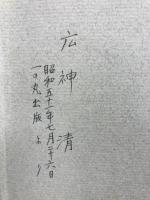 広神清
昭和五十一年七月二十六日
一の丸出版より